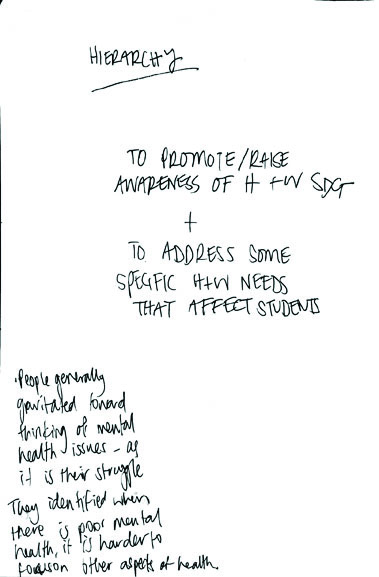 HIERARCHY
TO PROMOTE/RAISE
AWARENESS OF H +W SDG
+
TO ADDRESS SOME
SPECIFIC H+W NEEDS
THAT AFFECT STUDENTS
·People generally
gravitated toward
thinking of mental
health issues - as
it is their struggle
They identified when
there is poor mental
health, it is harder to
focus on other aspects of health.